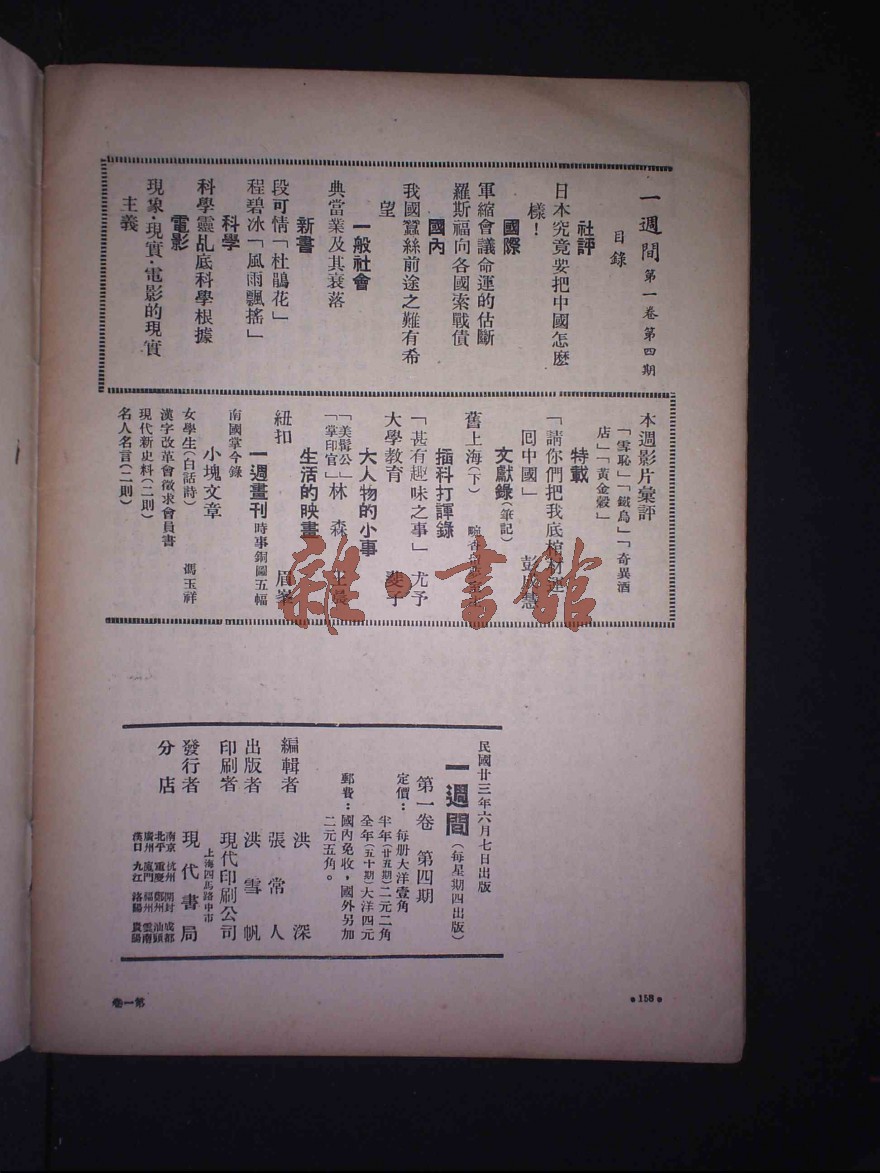 一週間 第一卷第四期
目錄
社評
日本究竟要把中國怎麼
樣！
國際
軍縮會議命運的估斷
羅斯福向各國索戰債
國內
我國蠶絲前途之難有希
望
一般社會
典當業及其衰落
新書
段可情「杜鵑花」
程碧冰「風雨飄搖」
科學
科學靈乩底科學根據
電影
現象·現實·電影的現實
主義
本週影片彙評
「雪恥」「鐵鳥」「奇異酒
店」「黃金穀」
特載
「請你們把我底棺材運
囘中國」 彭成慧
文獻錄(筆記)
舊上海(下)
插科打諢錄
「甚有趣味之事」 尤予
大學教育 斐子
大人物的小事
「美髯公」林 森
「掌印官」 王晨
生活的映畫
紐扣 眉峯
一週畫刊 時事銅圖五幅
南國掌今錄
小塊文章
女學生(白話詩) 馮玉祥
漢字改革會徵求會員書
現代新史料(二則)
名人名言(二則)
雜·書館
民國廿三年六月七日出版
一週間(每星期四出版)
第一卷 第四期
定價： 每册大洋壹角
半年(廿五期)二元二角
全年(五十期)大洋四元
郵費：國內免收，國外另加
二元五角。
編輯者 洪深
張常人
出版者 洪雪帆
印刷者 現代印刷公司
上海四馬路中市
發行者 現代書局
分店
南京 杭州 開封 成都
北平 重慶 鄭州 汕頭
廣州 廈門 福州 雲南
漢口 九江 洛陽 貴陽
第一卷
•158•